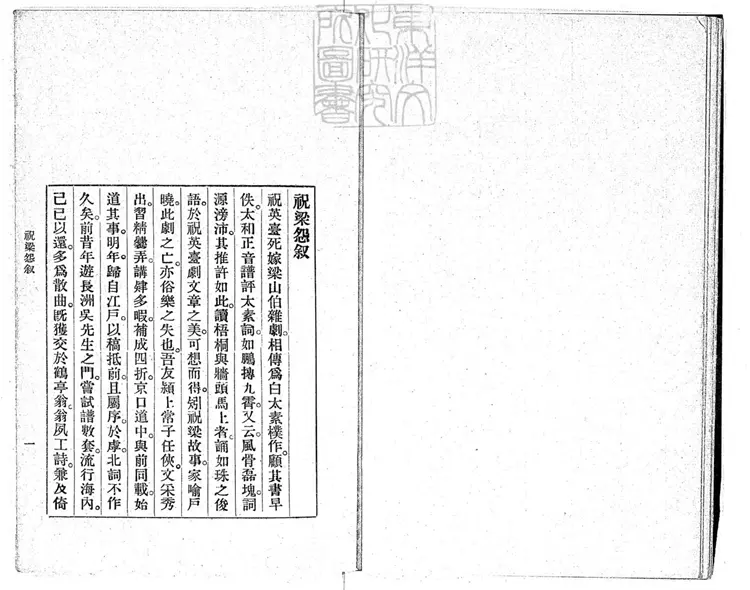 東洋文
化研究
所圖書
祝梁怨敘
祝英臺死嫁梁山伯雜劇。相傳爲白太素樸作。顧其書早
佚。太和正音譜評太素詞。如鵬摶九霄。又云。風骨磊塊。詞
源滂沛。其推許如此。讀梧桐與牆頭馬上者。誦如珠之俊
語。於祝英臺劇文章之美。可想而得。矧祝梁故事。家喻戶
曉。此劇之亡。亦俗樂之失也。吾友潁上常子任俠。文采秀
出。習精爨弄。講肄多暇。補成四折。京口道中。與前同載。始
道其事。明年。歸自江戶。以稿抵前。且屬序。於虖。北詞不作
久矣。前昔年遊長洲吳先生之門。嘗試譜數套。流行海內。
己巳以還。多爲散曲。旣獲交於鶴亭翁。翁夙工詩。兼及倚
祝梁怨敘
一